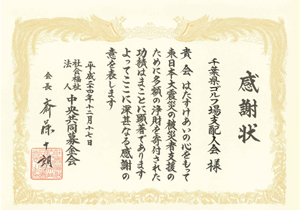 感謝状
千葉県ゴルフ場支配人会 様
貴会はたすけあいの心をもって
東日本大震災の被災者支援の
ために多額の浄財を寄付された
功績はまことに顕著であります
よってここに深甚なる感謝の
意を表します
平成二十四年十二月十七日
社会福祉法人 中央共同募金会
会長 斉藤十朗